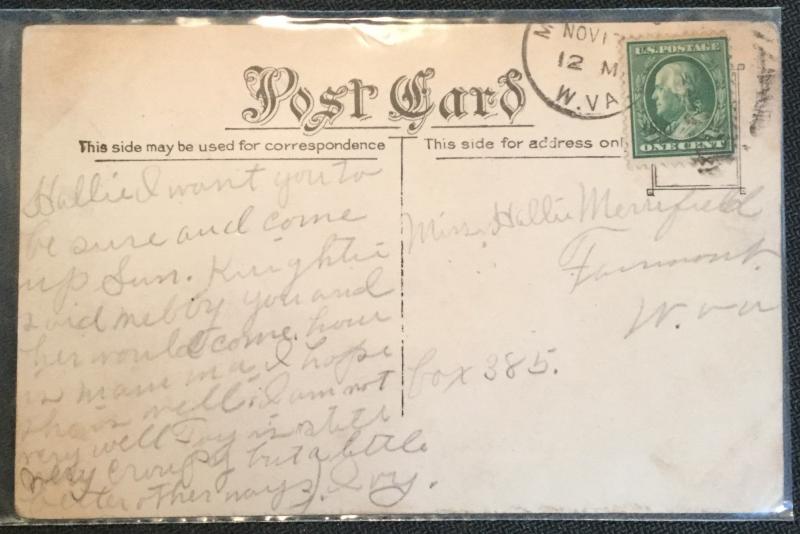 Post Card
This side may be used for correspondence
This side for address onl
M
NOV 17
12 M
W.VA
U.S. POSTAGE
ONE CENT
Hallie I want you to
be sure and come
up Sun. Knightie
said mebby you and
her would come. how
is mama I hope
she is well. I am not
very well Joy is still
very croupy but a little
better other ways. Ivy.
Miss Hallie Merrifield
Fairmont.
W. Va
box 385.